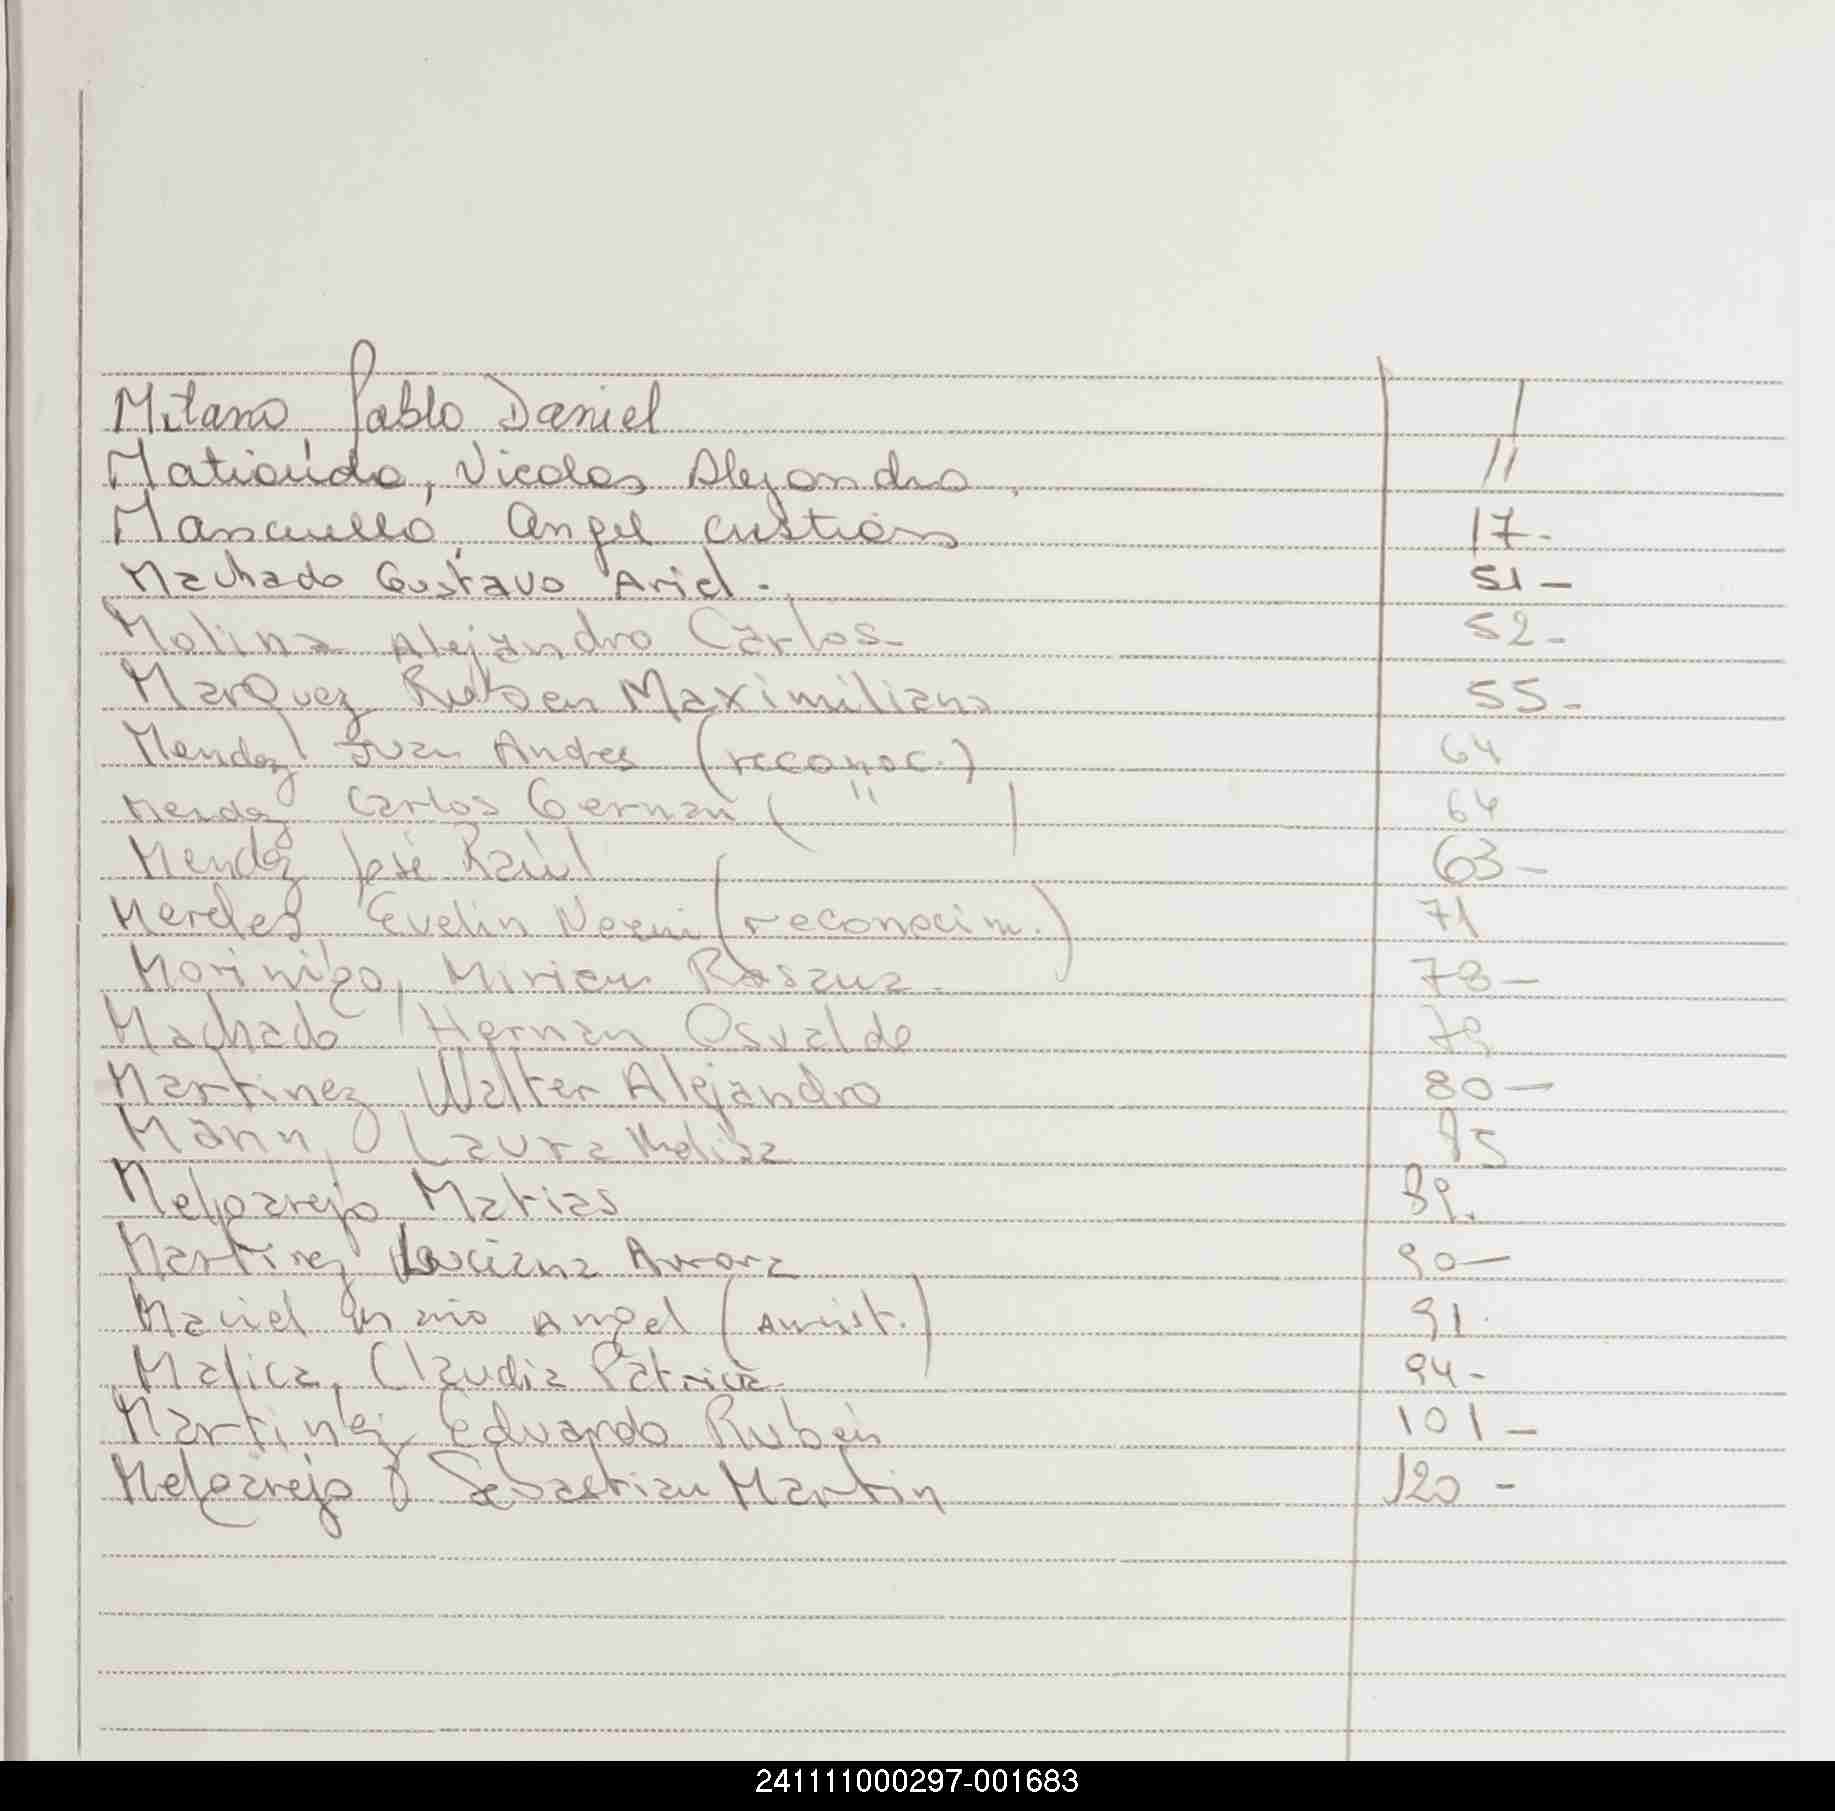 Milano Pablo Daniel 1
Matiauda, Nicolas Alejandro, 11
Mancuello, Angel Cristian 17-
Machado Gustavo Ariel. 51-
Molina Alejandro Carlos- 52-
Marquez Ruben Maximiliano 55-
Mendez Juan Andres (reconoc.) 64
Mendez Carlos German ( " ) 64
Mendez José Raúl 63-
Mereles Evelin Noemi (reconocim.) 71
Morinigo, Miriam Rossana. 78-
Machado Hernan Osvaldo 79
Martinez Walter Alejandro 80-
Mann, Laura Melisa 85
Melgarejo Matias 89.
Martinez Luciana Aurora 90-
Maciel Mario Angel (Amist.) 91.
Mafica, Claudia Patricia 94-
Martinez Eduardo Rubén 101-
Melgarejo Sebastian Martin 120-
241111000297-001683